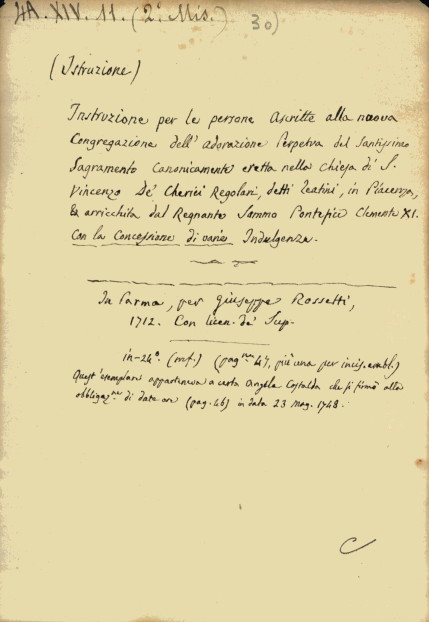 4A. XIV. 11. (2ª Mis.) 30)
(Istruzione)
Instruzione per le persone Ascritte alla nuova
Congregazione dell' adorazione Perpetua del Santissimo
Sagramento Canonicamente eretta nella Chiesa di S.
Vincenzo De' Cherici Regolari, detti Teatini, in Piacenza,
& arricchita dal Regnante Sommo Pontefice Clemente XI.
Con la Concessione di varie Indulgenze.
In Parma, per Giuseppe Rossetti,
1712. Con licen. de' Sup.
in-24º. (mf.) (pag.ne 47, più una per incis. embl.)
Quest' esemplare apparteneva a certa Angela Costalda che si firmò alla
obbligaz.ne di date ore (pag. 46) in data 23 Mag. 1748.
C